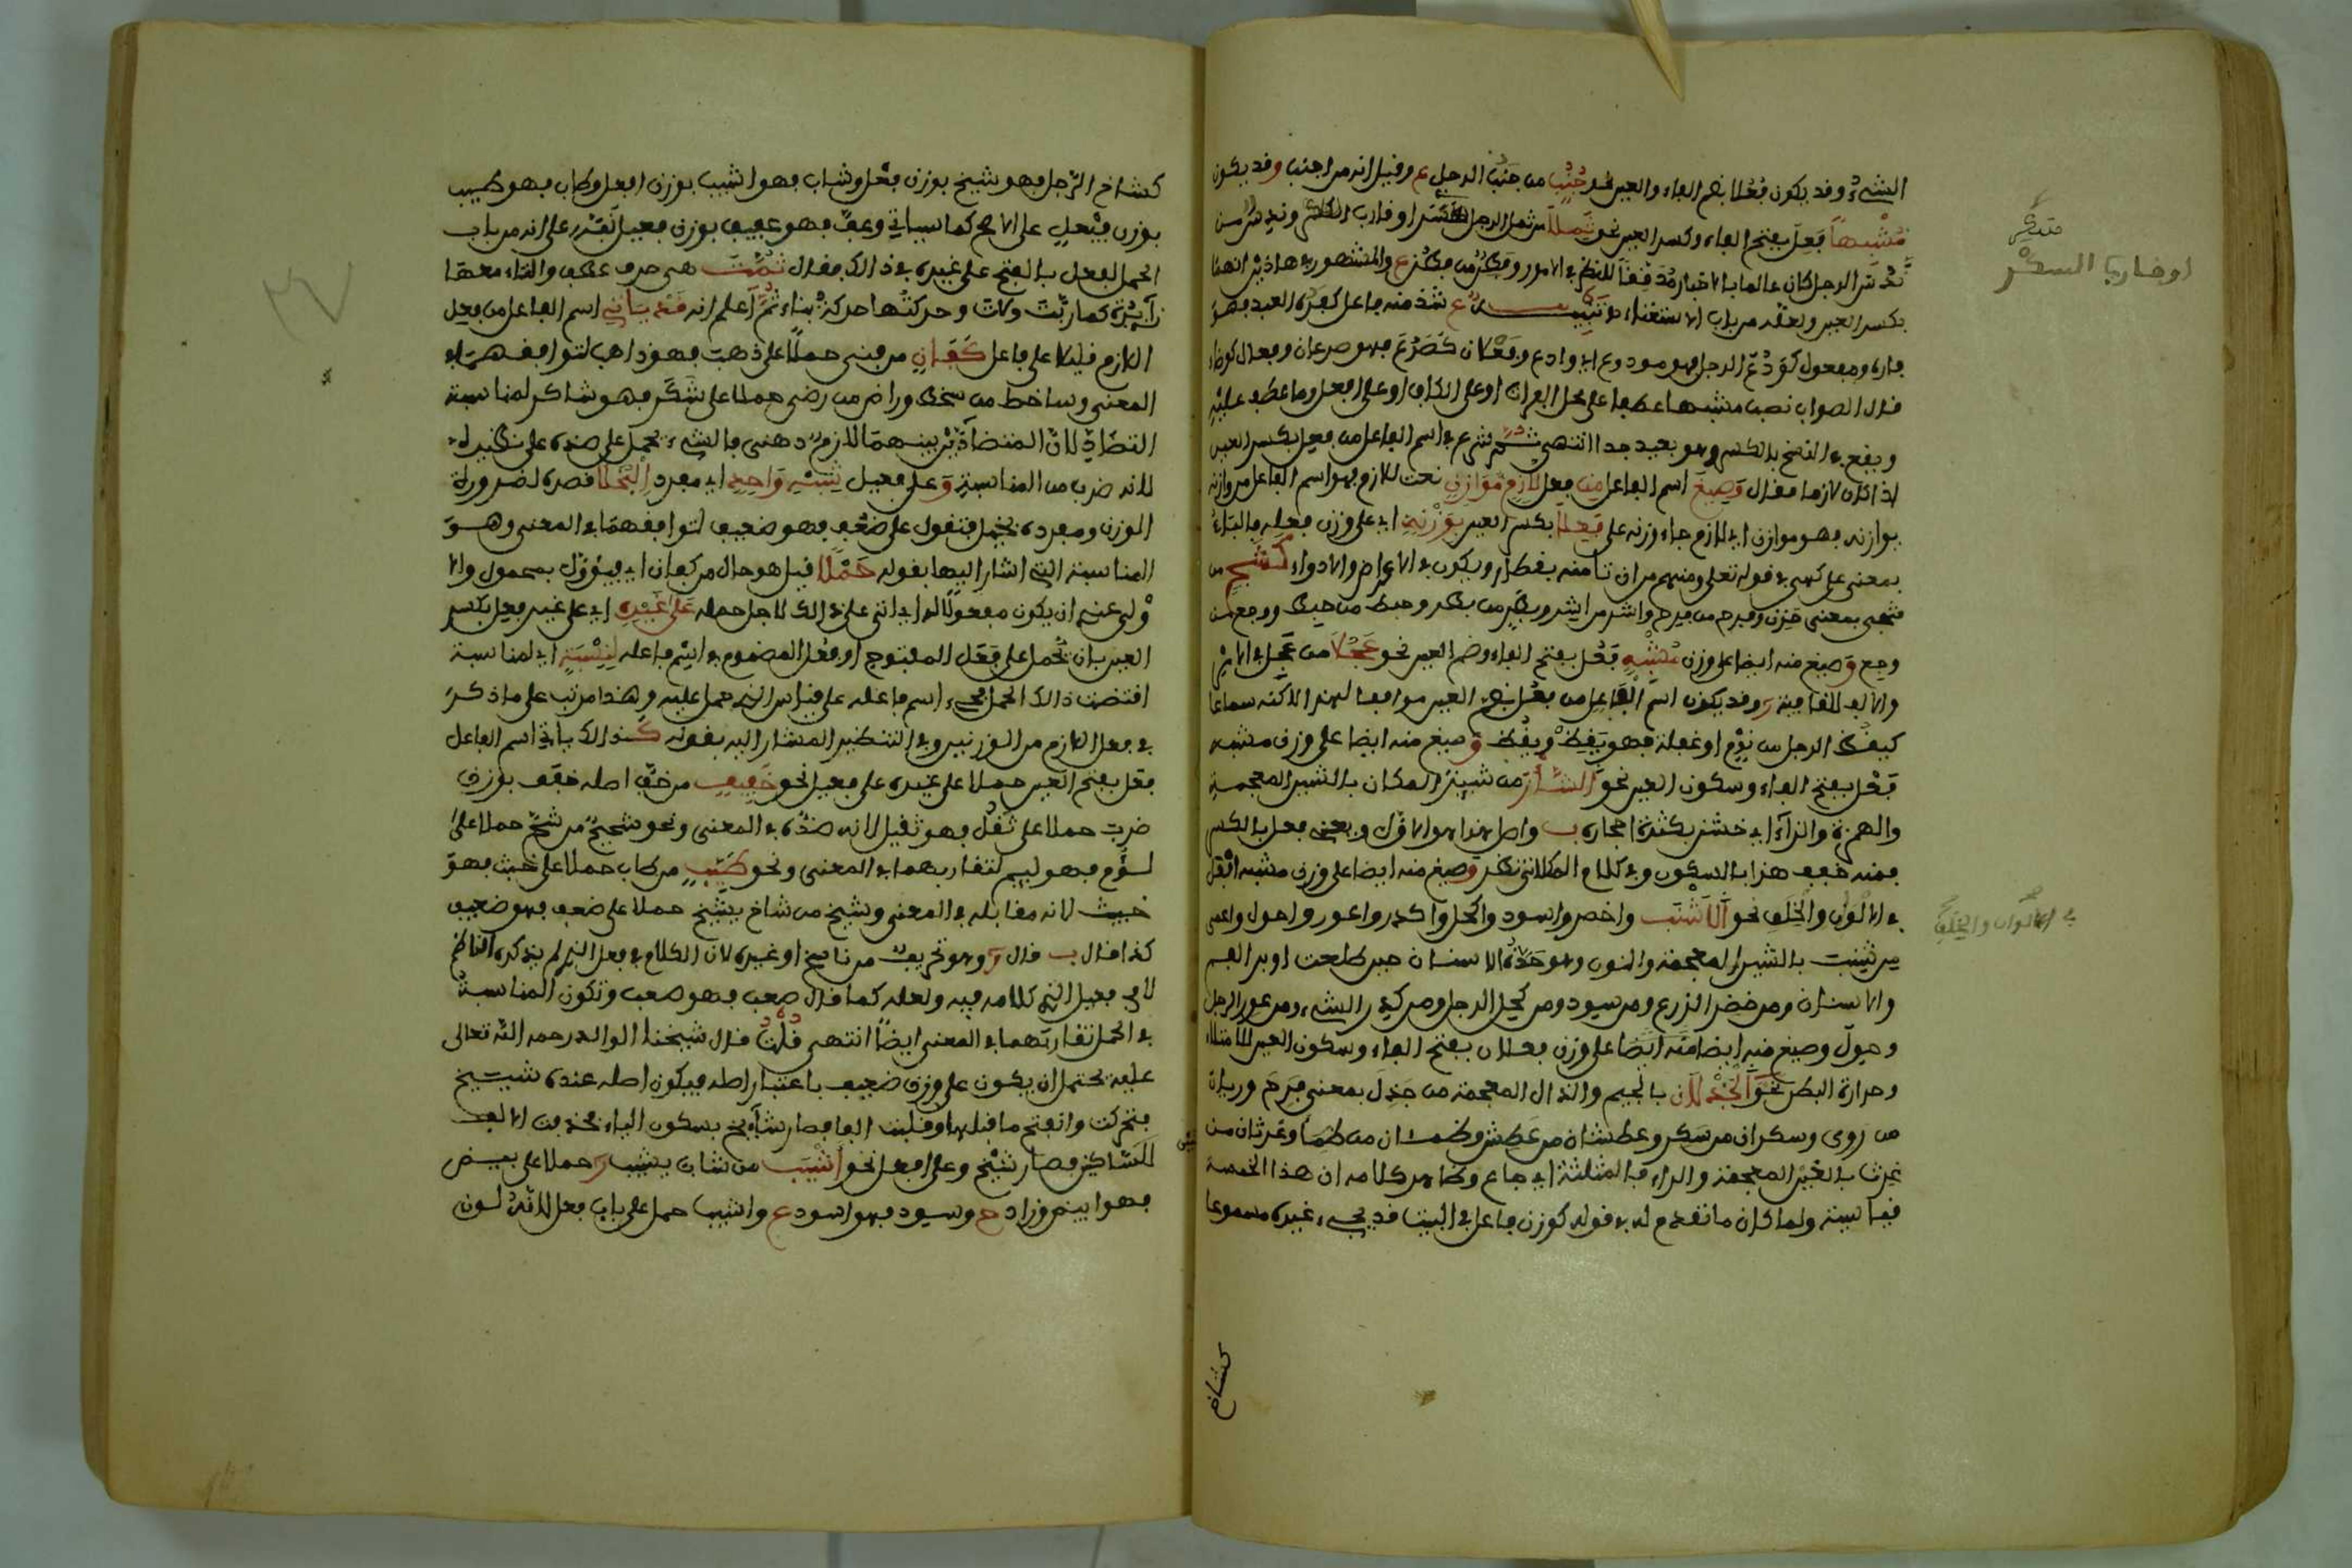 الشيء وقد يكون فُعُلا بضم الفاء والعين نحو جُنُب من جَنُبَ الرجل ع وقيل انه من اجنب وقد يكون
مُشْبِهاً فَعِلَ بفتح الفاء وكسر العين نحو ثَمِلاً من ثمل الرجل او قارب السكر
الرجل كان عالما بالاخبار مُدَقِّقاً للنظر في الامور والمشهور في هاذين انهما
بكسر العين ولعله من باب الاستغناء تنبيه ع شذ منه فاعل كفَرُه العبد فهو
فاره ومفعول كوَدُعَ الرجل فهو مودوع اي وادع وفَعْلان كصَرُعَ فهو صرعان وفعال كوضاء
قال الصواب نصب مشبها عطفا على محل القران او على الكاف او على افعل وما عطف عليه
ويقع في النسخ بالكسر وهو بعيد جدا انتهى ثم شرع في اسم الفاعل من فعِل بكسر العين
اذا كان لازما فقال وَصِيغَ اسم الفاعل مِن فعل لازِمٍ مُوَازِنِ نعت للازم فهو اسم الفاعل من وازنه
يوازنه فهو موازن اي للازم جاء وزنه على فَعِلاَ بكسر العين بِوَزْنِهِ اي على وزن فعله فالباء
بمعنى على كهي في قوله تعلى ومنهم من ان تامنه بقنطار ويكون في الاعراض والادواء كَشَجٍ من
شجي بمعنى حزن وفرح من فرح واشر من اشر وبطر من بطر وحبط من حبط ووجع من
وجع وَصيغ منه ايضا على وزن مُشْبِهِ فَعُل بفتح الفاء وضم العين نحو عَجُلاَ من عجِل في الامر
والالف للقافية وقد يكون اسم الفاعل من فعُل بضم العين موافقا لهذا لاكنه سماعا
كيقظ الرجل من نوم او غفلة فهو يَقِظ ويقُظ وَصيغ منه ايضا على وزن مشبه
فَعْل بفتح الفاء وسكون العين نحو الشَّأْز من شئِز المكان بالشين المعجمة
والهمزة والزاء اي خشن بكثرة احجاره ب واصل هذا هو الاول وبعض فعل بالكسر
فمنه خفف هزا بالسكون وفي كلام المكلاتي نظر وصيغ منه ايضا على وزن مشبه افعل
في الالْوَانِ والْخِلَقِ نحو الاَشْنَب واخضر واسود واكحل واكدر واعور واحول واعمى
من شنب بالشين المعجمة والنون وهو حَدَّةُ الاسنان حين طلعت او برد الفم
والاسنان ومن خضر الزرع ومن سود ومن كحل الرجل ومن كدر الشيء ومن عور الرجل
وحول وصيغ منه ايضا على وزن فعلان بفتح الفاء وسكون العين للامتلاء
وحرارة البطن نَحوَ الجَذْلاَن بالجيم والذال المعجمة من جَذِلَ بمعنى فرِحَ وريان
من رَوِى وسكران من سَكر وعطشان من عَطِش وظمئان من ظَمِأَ وغرثان من
غرث بالغين المعجمة والراء فالمثلثة اي جاع وظاهر كلامه ان هذا الخمسة
قياسية ولما كان ما تقدم له في قوله كوزن فاعل في البيت قد يجيء غيره مسموعا
كشاخ
في الالوان والخلق
او قاربا السكر
كشاخ الرّجل فهو شيخ بوزن فَعْل وشاب فهو اشيب بوزن افعل وطاب فهو طيب
بوزن فَيْعِلٍ على الاصح كما سياتي وعفَّ فهو عفيف بوزن فعيل على انه من باب
الحمل لفعل بالفتح على غيره في ذالك فقال ثُمَّتَ هي حرف عطف والتاء معها
زائدة كما رُبَّتَ ولات وحركتها حركة بناء ثُمَّ اعلم انه قَدْ يَاتِي اسم الفاعل من فعِل
اللازم قليلا على فاعل كَفَانٍ من فنى حملًا على ذهبَ فهو ذاهب لتوافقهما في
المعنى وساخط من سخط وراض من رضي حملا على شَكَر فهو شاكر لمناسبة
التضاد لان المتضادين بينهما لازم ذهني فالشيء يحمل على ضده على نظيره
لانه ضرب من المناسبة وَعلى فعيل شِبْهِ وَاحِدِ اي مفرد الْبُخَلَا قصره لضرورة
الوزن ومفرده بخيل فتقول على ضعُف فهو ضعيف لتوافقهما في المعنى وهو
المناسبة التي اشار اليها بقوله حَمْلًا قيل هو حال من كفان اي فيؤول بمحمول والا
وْلى عنه ان يكون مفعولًا له اي اتى على ذالك لاجل حمله عَلَى غَيْرِهِ اي على غير فعِل بكسر
العين بان تحمل على فَعَل المفتوح او فعُل المضموم في اسم فاعله لِنِسْبَةٍ اي لمناسبة
اقتضت ذالك الحمل مجيء اسم فاعله على قياس الذي حمل عليه وهذا مرتب على ما ذكر
في فعل اللازم من الوزنين وفي التنظير المشار اليه بقوله كَذالك ياتي اسم الفاعل
فعَل بفتح العين حملا على غيره على فعيل نحو خَفِيفٍ من خفَّ اصله خفَف بوزن
ضرب حملا على ثقُل فهو ثقيل لانه ضده في المعنى ونحو شحيح من شحَّ حملا على
لؤم فهو لئيم لتقاربهما في المعنى ونحو طَيِّبٍ من طاب حملا على خبث فهو
خبيث لانه مقابله في المعنى وشيخ من شاخ يشيخ حملا على ضعف فهو ضعيف
كذا قال ب قال وهو تحريف من ناسخ او غيره لان الكلام في فعل الذي لم يذكره الناظم
لا في فعيل الذي كلامه فيه ولعله كما قال صعب فهو صعب وتكون المناسبة
في الحمل تقاربهما في المعنى ايضًا انتهى قُلْتُ قال شيخنا الوالد رحمه الله تعالى
عليه يحتمل ان يكون على وزن ضعيف باعتبار اصله فيكون اصله عنده شييخ
فتحركت وانفتح ما قبلها وقلبت الفا فصار شايخ بسكون الياء فحذفت الالف
للساكنين فصار شيْخ وعلى افعل نحو اَشْيَب من شاب يشيب حملا على بيض
فهو ابيض وزاد ح وسود فهو اسود ع واشيب حمل على باب فعل لانه لون